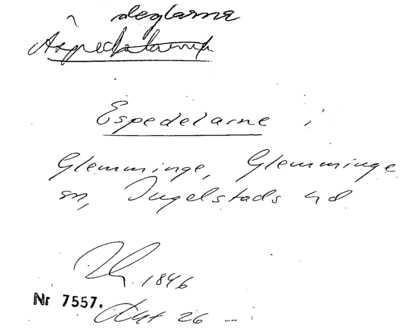 deglarna
Espedelarne i
Glemminge, Glemminge
sn, Ingelstads hd
1846
Nr 7557.
26